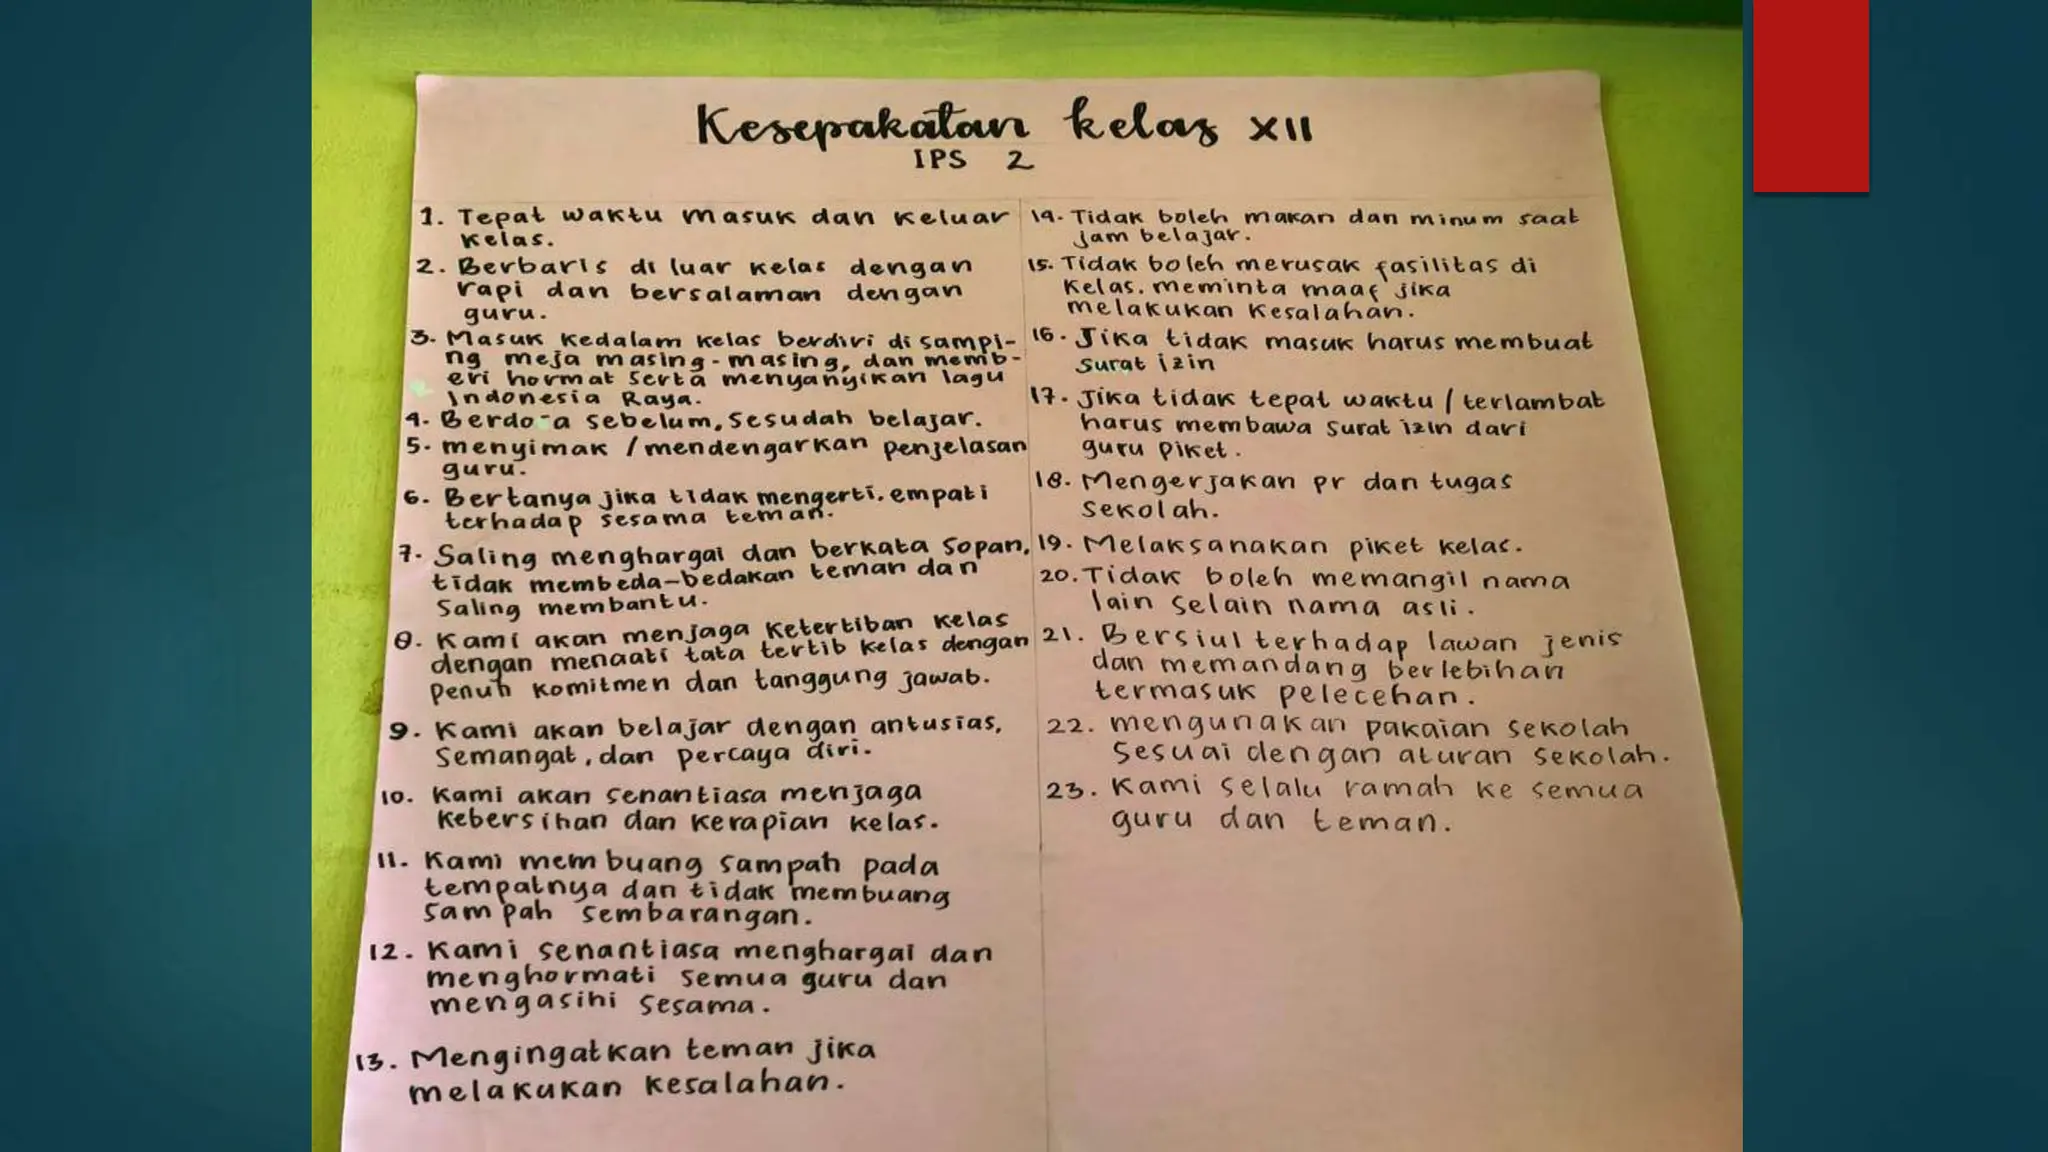 Kesepakatan kelas XII
IPS 2
1. Tepat waktu masuk dan keluar
kelas.
2. Berbaris di luar kelas dengan
rapi dan bersalaman dengan
guru.
3. Masuk kedalam kelas berdiri di sampi-
ng meja masing-masing, dan memb-
eri hormat serta menyanyikan lagu
Indonesia Raya.
4. Berdo-a sebelum, sesudah belajar.
5. menyimak / mendengarkan penjelasan
guru.
6. Bertanya jika tidak mengerti, empati
terhadap sesama teman.
7. Saling menghargai dan berkata sopan,
tidak membeda-bedakan teman dan
saling membantu.
8. Kami akan menjaga ketertiban kelas
dengan menaati tata tertib kelas dengan
penuh komitmen dan tanggung jawab.
9. Kami akan belajar dengan antusias,
semangat, dan percaya diri.
10. Kami akan senantiasa menjaga
kebersihan dan kerapian kelas.
11. Kami membuang sampah pada
tempatnya dan tidak membuang
sampah sembarangan.
12. Kami senantiasa menghargai dan
menghormati semua guru dan
mengasihi sesama.
13. Mengingatkan teman jika
melakukan kesalahan.
14. Tidak boleh makan dan minum saat
jam belajar.
15. Tidak boleh merusak fasilitas di
kelas. meminta maaf jika
melakukan kesalahan.
16. Jika tidak masuk harus membuat
surat izin
17. Jika tidak tepat waktu / terlambat
harus membawa surat izin dari
guru piket.
18. Mengerjakan pr dan tugas
sekolah.
19. Melaksanakan piket kelas.
20. Tidak boleh memangil nama
lain selain nama asli.
21. Bersiul terhadap lawan jenis
dan memandang berlebihan
termasuk pelecehan.
22. mengunakan pakaian sekolah
sesuai dengan aturan sekolah.
23. Kami selalu ramah ke semua
guru dan teman.